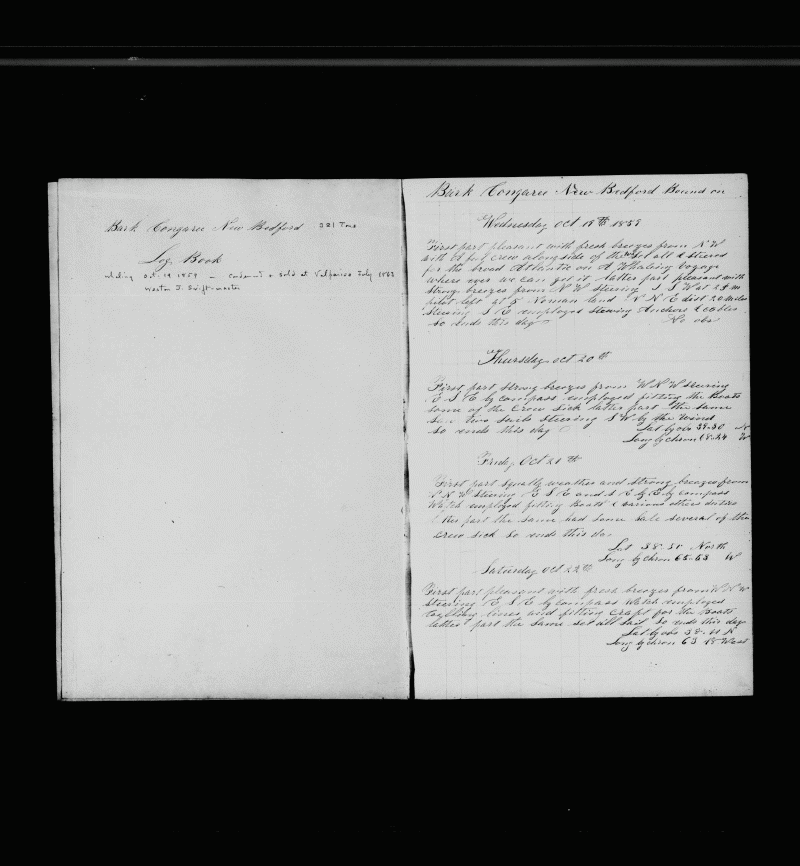 Bark Congaree New Bedford 321 Tons
Log Book
whaling Oct. 19 1859 — condemned & sold at Valparaiso July 1863
Weston J. Swift master
Bark Congaree New Bedford Bound on
Wednesday Oct 19th 1859
First part pleasant with fresh breezes from N W
with A full crew along side of the set all & steered
for the broad Atlantic on A Whaling voyage
where ever we can get it latter part pleasant with
strong breezes from N W Steering S S W at 2 P m
pilot left at 5 Nomans land N N E dist 20 miles
Steering S E employed stowing Anchors & cables
So ends this day No obs
Thursday Oct 20th
First part strong breezes from W N W steering
E S E by compass employed fitting the Boats
some of the Crew sick latter part the same
two sails steering S W by the wind
So ends this day Lat by obs 39-30 N
Long by chron 68-24 W
Friday Oct 21th
First part squally weather and strong breezes from
N W Steering E S E and S E by E by compass
Watch employed fitting Boats & various others duties
latter part the same had some sale several of the
crew sick So ends this day
Lat 38-50 North
Long by chron 65-53 W
Saturday Oct 22th
First part pleasant with fresh breezes from W N W
Steering E S E by compass Watch employed
lines and fitting craft for the Boats
latter part the same set all sail So ends this day
Lat by obs 38-11 N
Long by chron 63 18 West